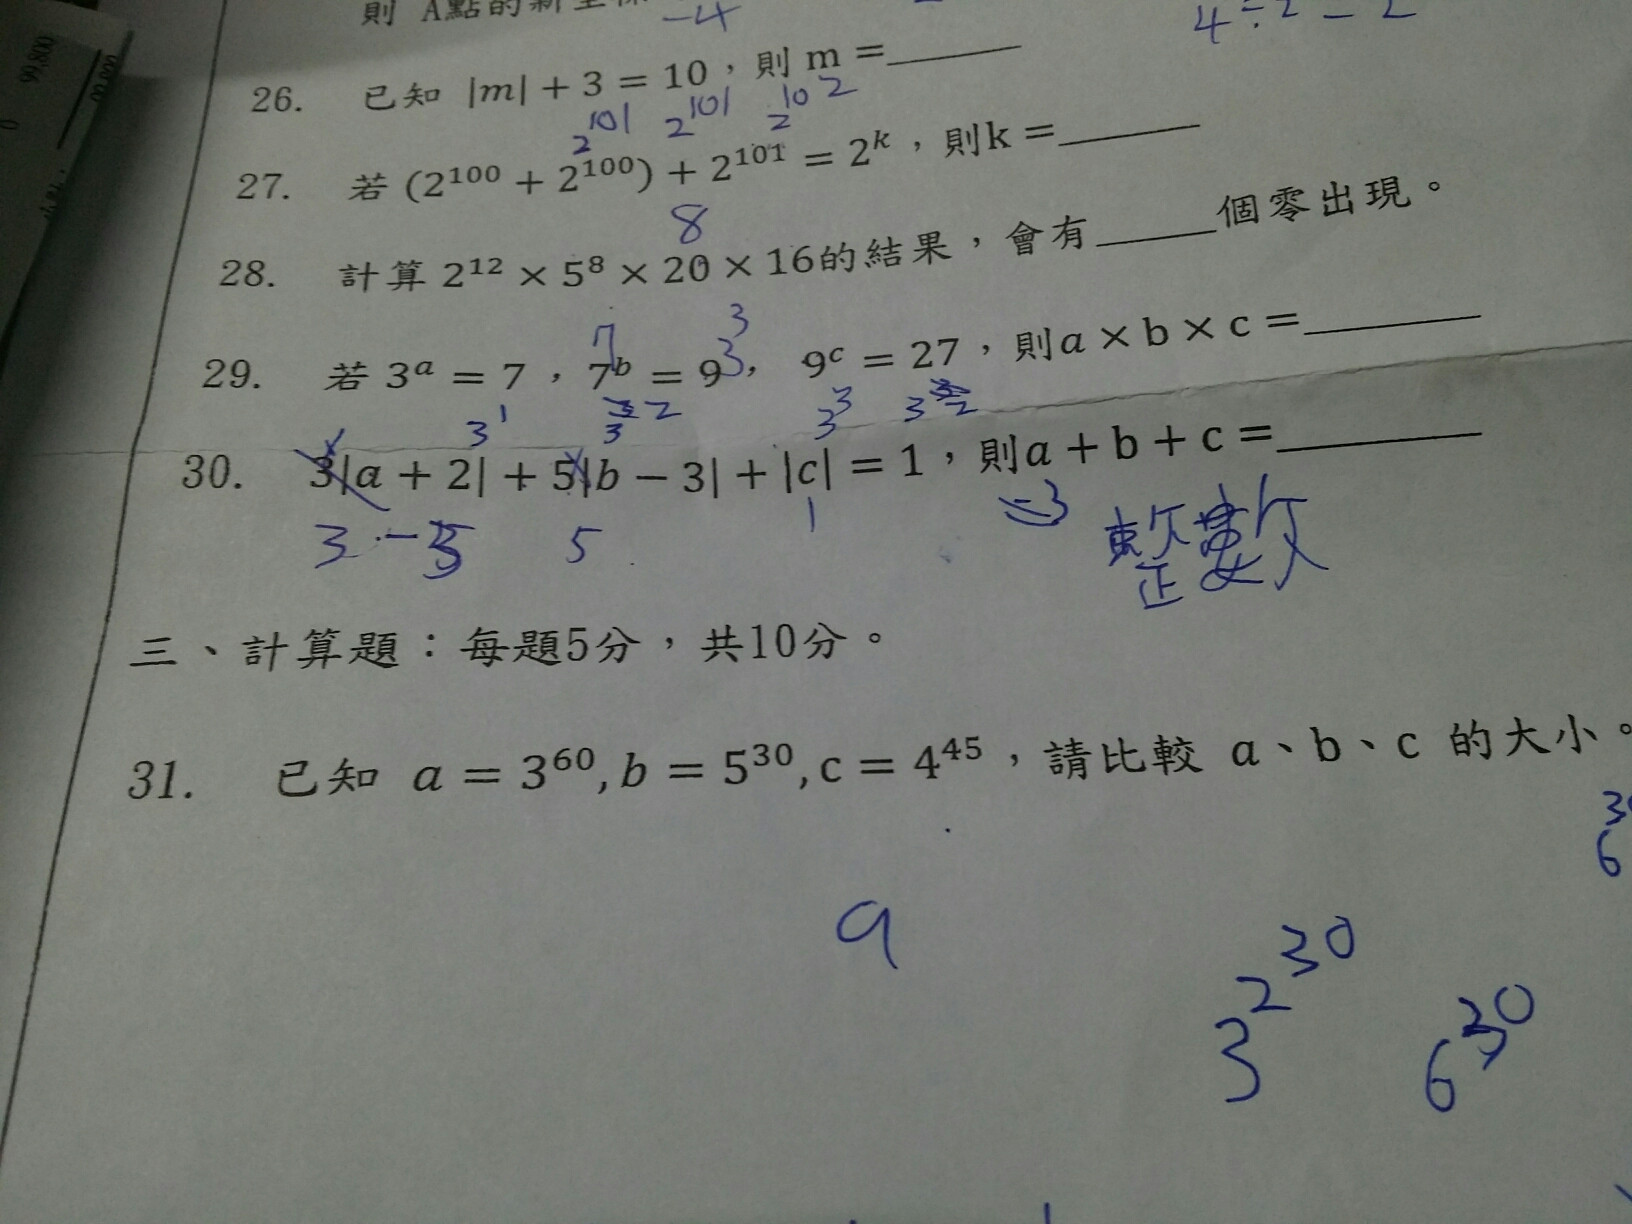 則 A點的新坐標
-4
4÷2=2
99,800
26. 已知 |m| + 3 = 10，則 m =______
2^101 2^101 2^102
27. 若 (2^100 + 2^100) + 2^101 = 2^k，則k =______
8
28. 計算 2^12 × 5^8 × 20 × 16的結果，會有______個零出現。
7 3 3
29. 若 3^a = 7，7^b = 9， 9^c = 27，則a × b × c =______
3^1 3^2 3^3 3^2
30. 3|a + 2| + 5|b − 3| + |c| = 1，則a + b + c =______
3 -5 5 1 =3 整數
三、計算題：每題5分，共10分。
31. 已知 a = 3^60, b = 5^30, c = 4^45，請比較 a、b、c 的大小。
a
3^2^30 6^30